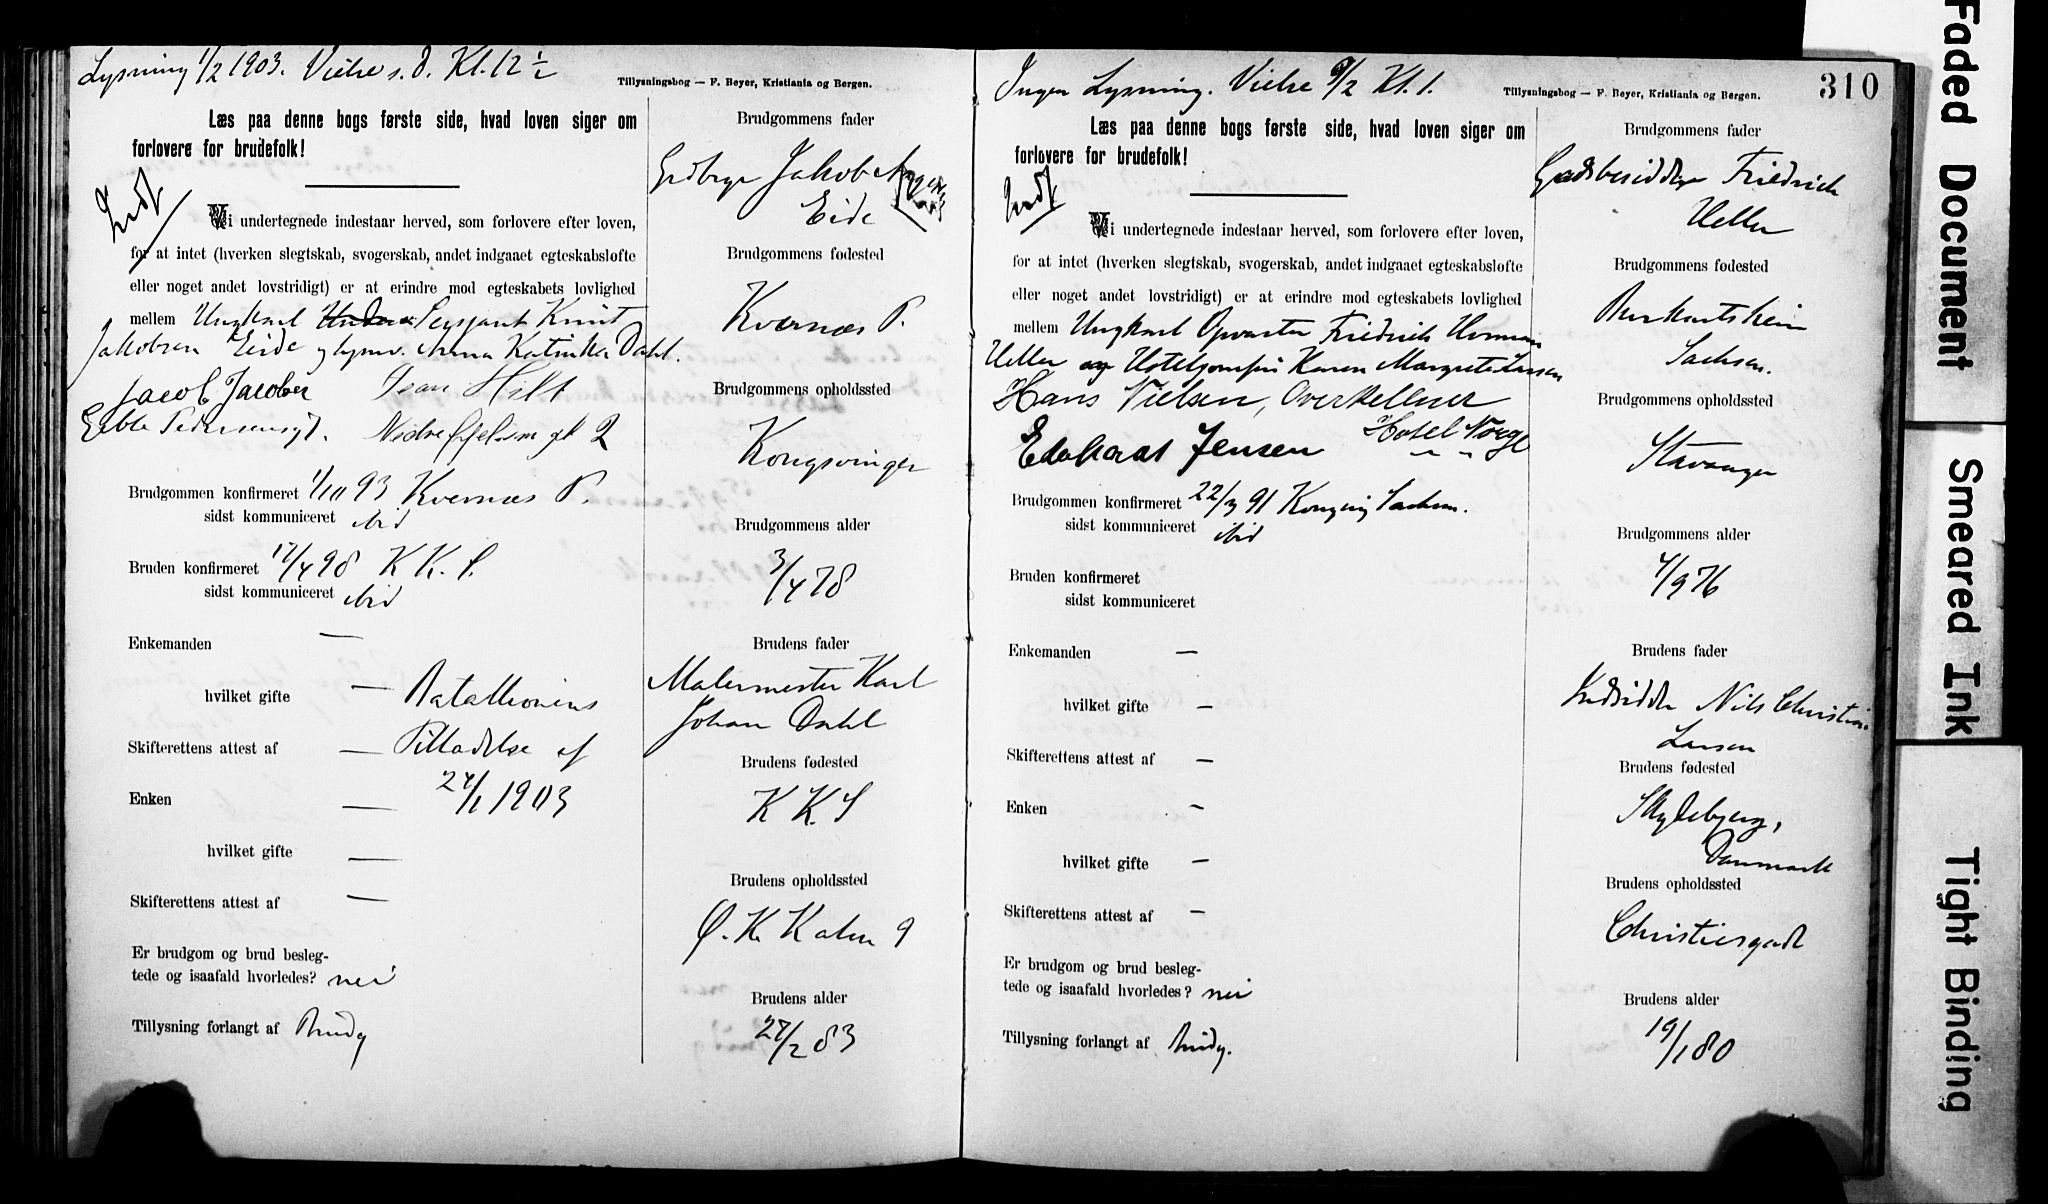 Lysning 1/2 1903. Vielse s. d. Kl. 12 1/2
Tillysningsbog — F. Beyer, Kristiania og Bergen.
Læs paa denne bogs første side, hvad loven siger om
forlovere for brudefolk!
Indf
Vi undertegnede indestaar herved, som forlovere efter loven,
for at intet (hverken slegtskab, svogerskab, andet indgaaet egteskabsløfte
eller noget andet lovstridigt) er at erindre mod egteskabets lovlighed
mellem Ungkarl Sersjant Knut
Jakobsen Eide og Anna Katinka Dahl.
Jacob Jacobsen Hilt
2
Brudgommen konfirmeret 1/10 93 Kvernæs P.
sidst kommuniceret ibid
Bruden konfirmeret 17/4 98 K K. S.
sidst kommuniceret ibid
Enkemanden —
hvilket gifte —
Skifterettens attest af —
Bataillonens
Tilladelse af
24/1 1903
Enken —
hvilket gifte —
Skifterettens attest af —
Er brudgom og brud besleg-
tede og isaafald hvorledes? nei
Tillysning forlangt af Brudg
Brudgommens fader
Gedbrger Jakob
Eide
Brudgommens fødested
Kvernæs P.
Brudgommens opholdssted
Kongsvinger
Brudgommens alder
3/4 78
Brudens fader
Malermester Karl
Johan Dahl
Brudens fødested
K K. S
Brudens opholdssted
Ø. K. Kalv 9
Brudens alder
27/2 83
Ingen Lysning. Vielse 9/2 Kl. 1.
Tillysningsbog — F. Beyer, Kristiania og Bergen.
310
Læs paa denne bogs første side, hvad loven siger om
forlovere for brudefolk!
Indf
Vi undertegnede indestaar herved, som forlovere efter loven,
for at intet (hverken slegtskab, svogerskab, andet indgaaet egteskabsløfte
eller noget andet lovstridigt) er at erindre mod egteskabets lovlighed
mellem Ungkarl Opvarter Friedrich Herman
Heller og Hoteljomfru Karen Margrete Larsen
Hans Nielsen, Overkellner
Hotel Norge
Edvard Jensen
Brudgommen konfirmeret 22/3 91 Sachsen.
sidst kommuniceret ibid
Bruden konfirmeret
sidst kommuniceret
Enkemanden —
hvilket gifte —
Skifterettens attest af —
Enken —
hvilket gifte —
Skifterettens attest af —
Er brudgom og brud besleg-
tede og isaafald hvorledes? nei
Tillysning forlangt af Brudg.
Brudgommens fader
Godsbesidder Friedrich
Heller
Brudgommens fødested
Burkartshein
Sachsen.
Brudgommens opholdssted
Stavanger
Brudgommens alder
4/9 76
Brudens fader
Nils Christian
Larsen
Brudens fødested
Skydebjerg,
Danmark
Brudens opholdssted
Christiesgade
Brudens alder
19/1 80
Faded Document
Smeared Ink
Tight Binding